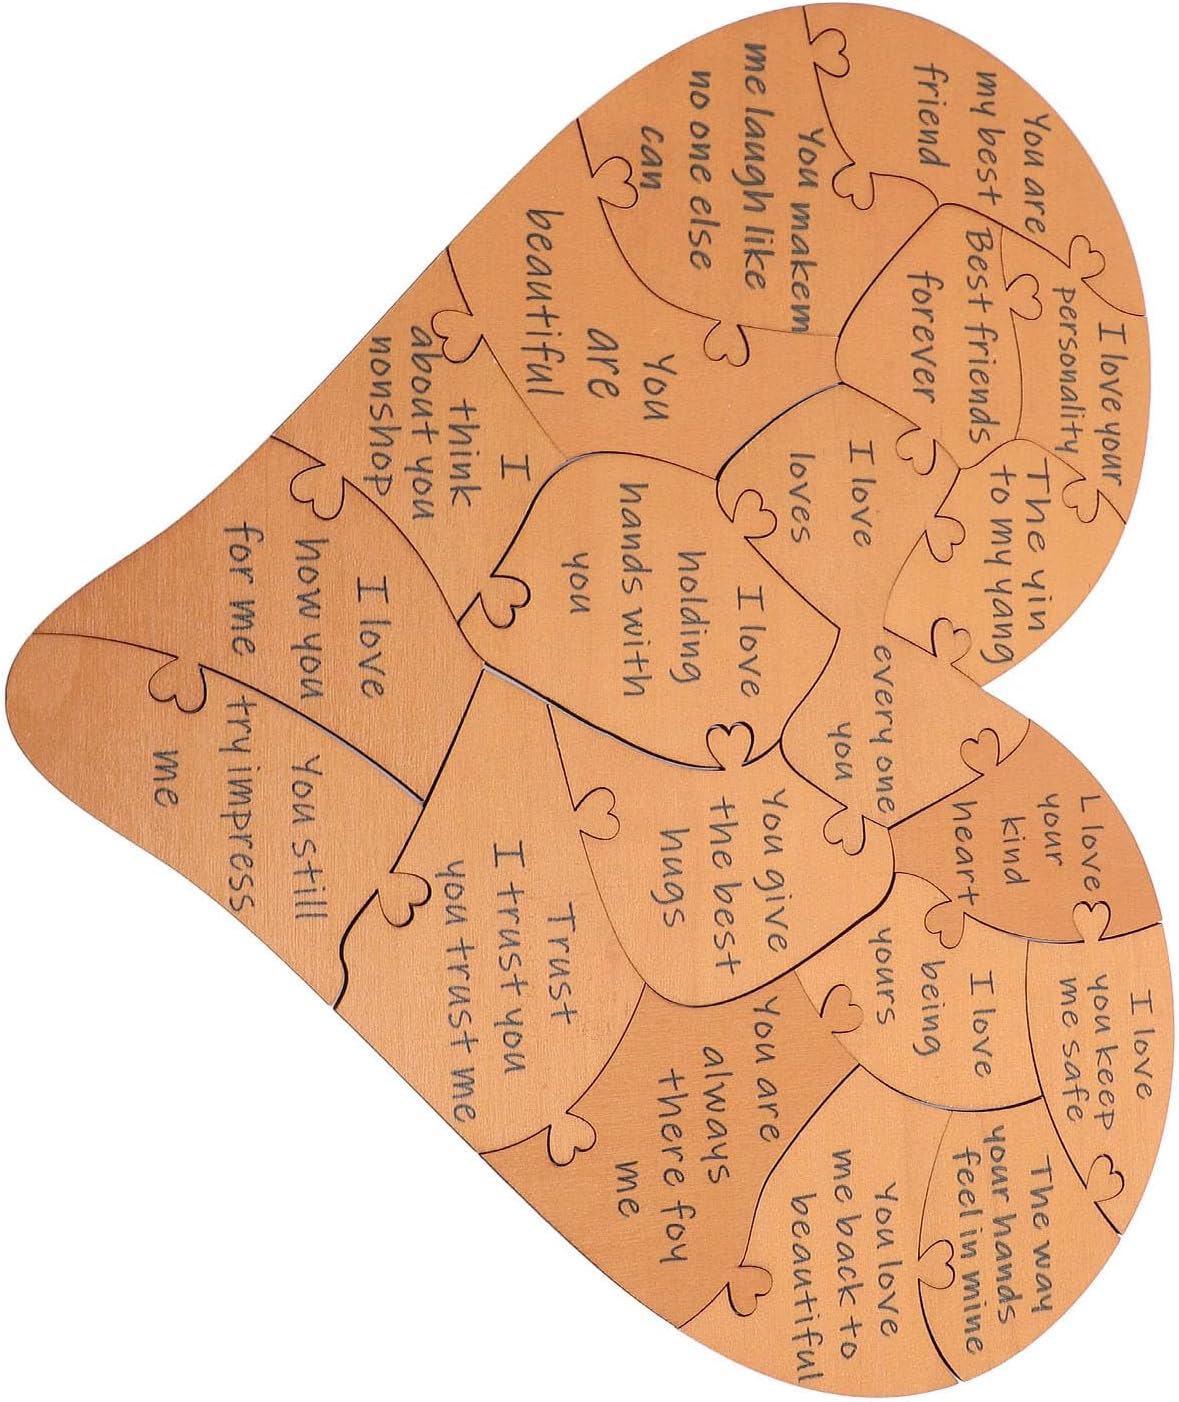 You are
my best
friend
I love your
personality
You makem
me laugh like
no one else
can
Best friends
forever
The yin
to my yang
You
are
beautiful
I love
loves
every one
you
L love
your
kind
heart
I love
you keep
me safe
I
think
about you
nonshop
I love
holding
hands with
you
You give
the best
hugs
I love
being
yours
The way
your hands
feel in mine
I love
how you
for me
You still
try impress
me
Trust
I trust you
you trust me
You are
always
there foy
me
You love
me back to
beautiful